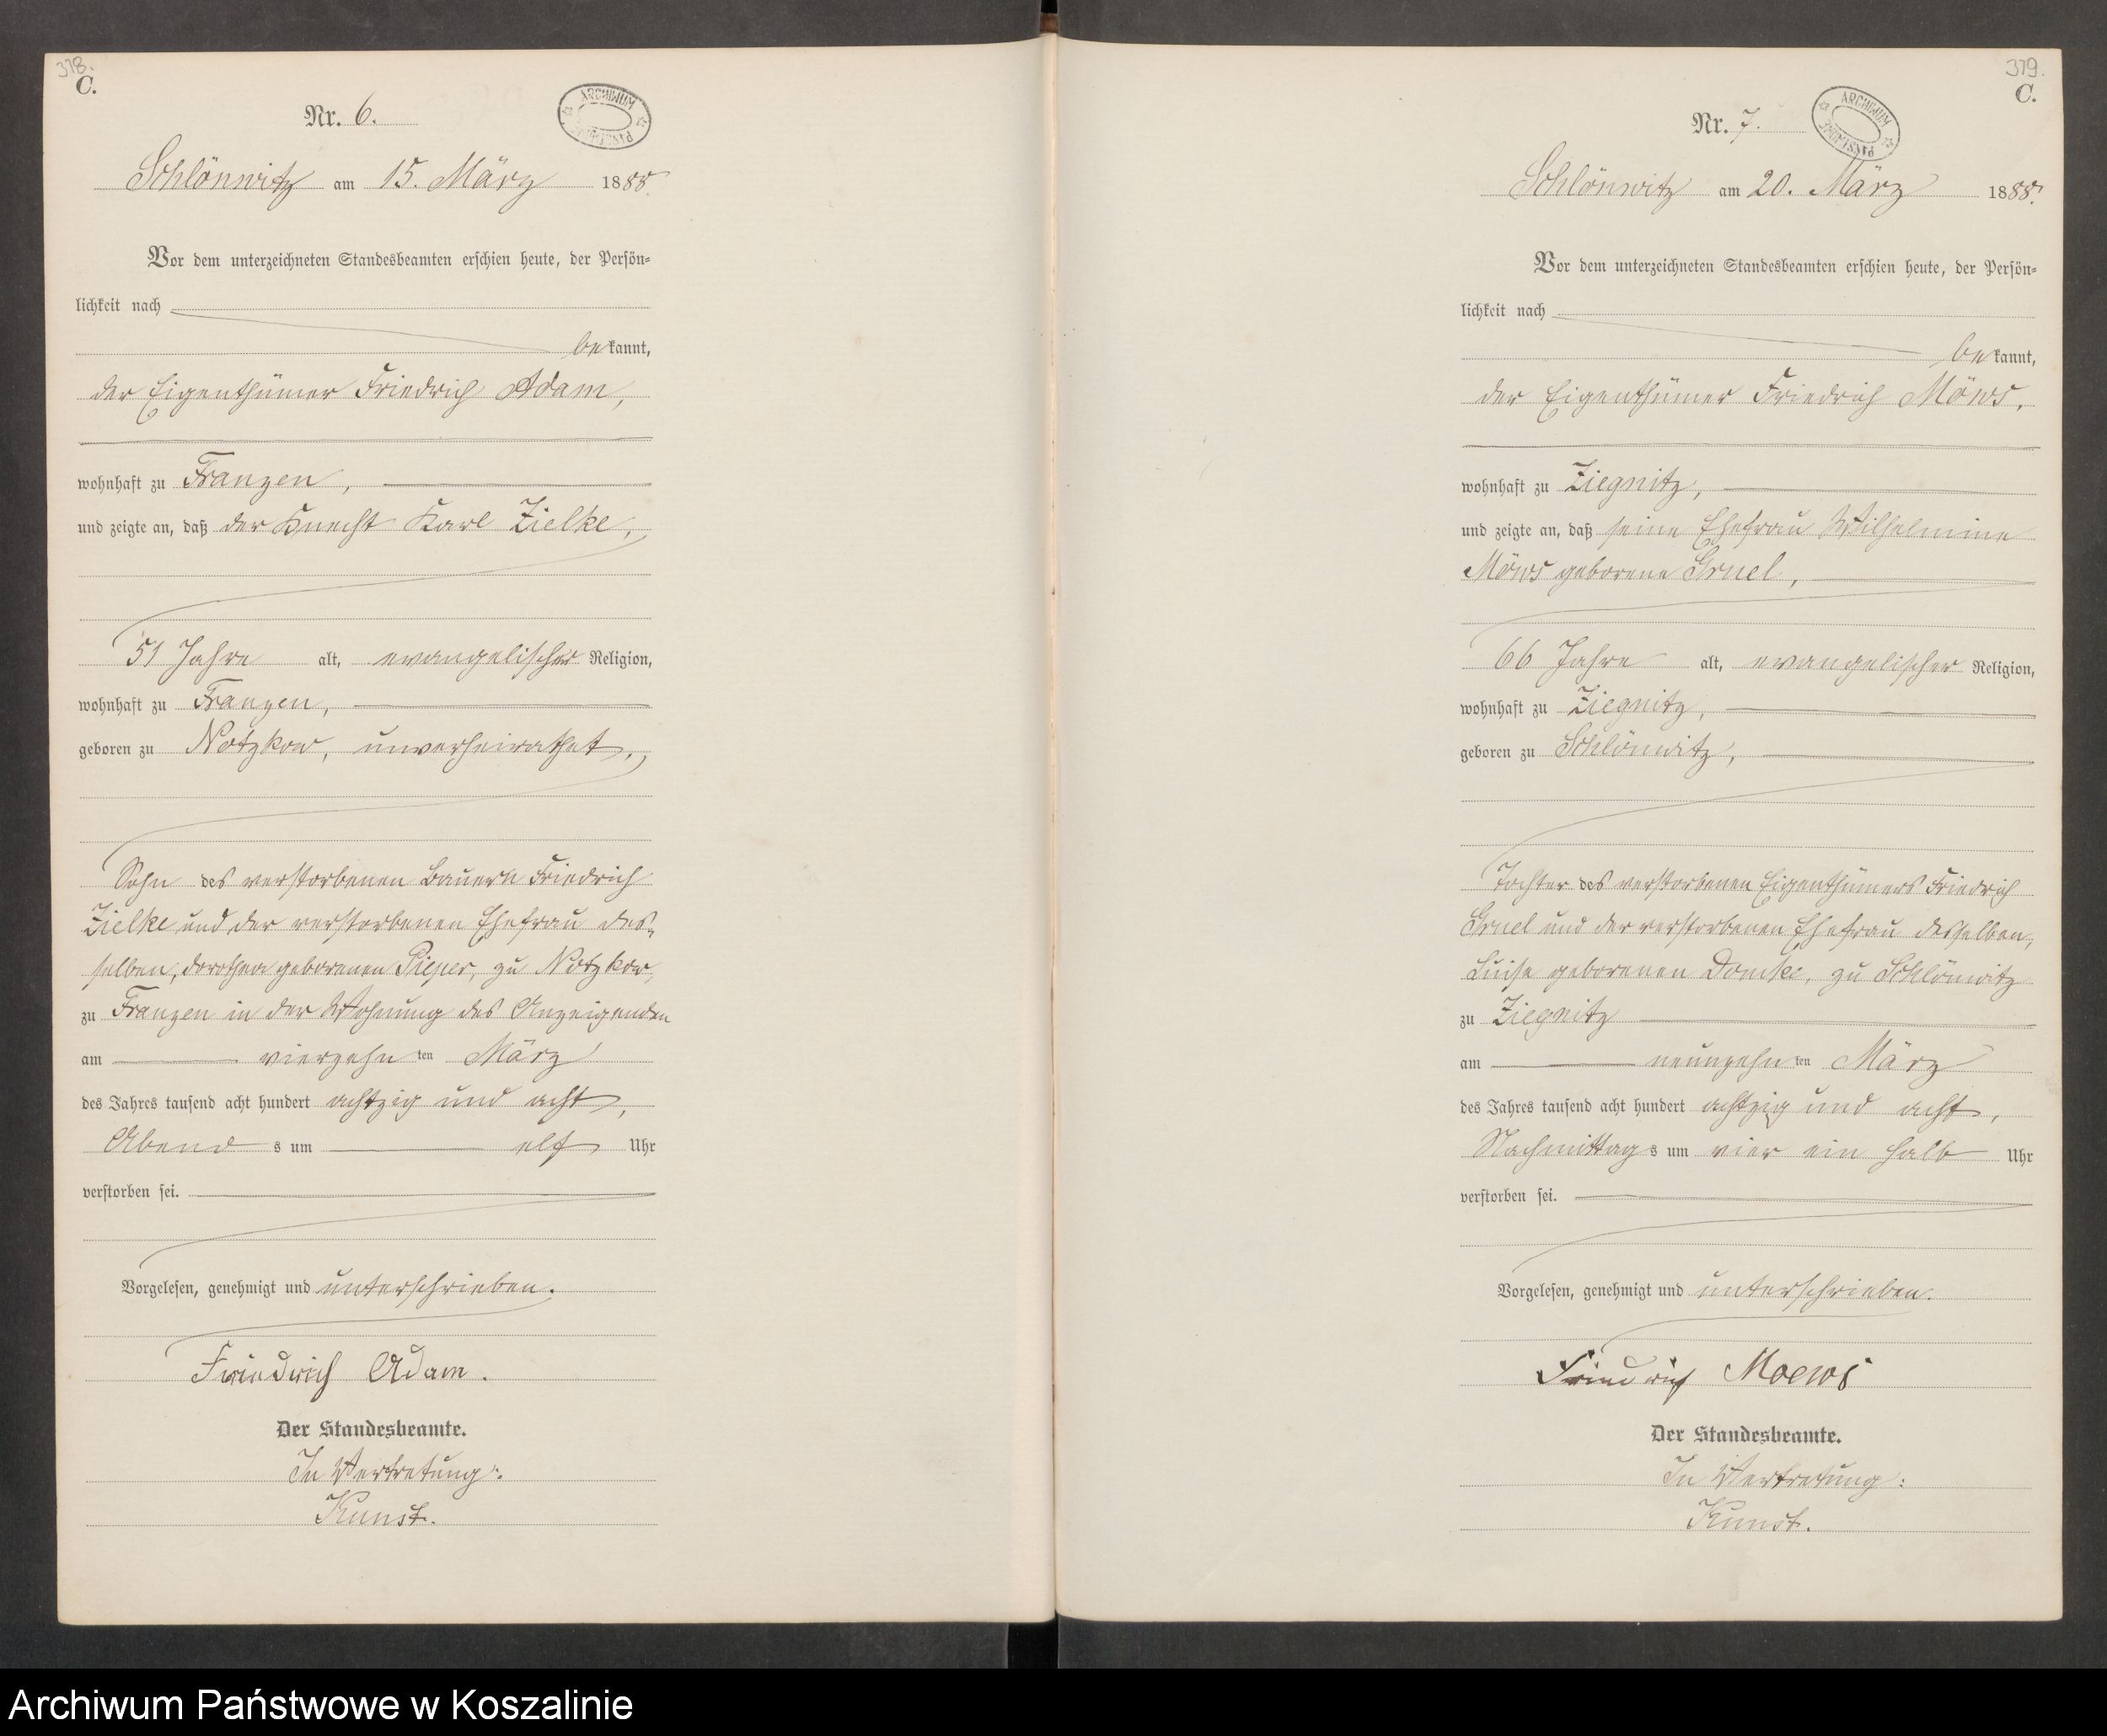 378.
C.
Nr. 6.
ARCHIWUM PAŃSTWOWE
Schlönwitz am 15. März 1888.
Vor dem unterzeichneten Standesbeamten erschien heute, der Persön-
lichkeit nach
bekannt,
der Eigenthümer Friedrich Adam,
wohnhaft zu Franzen,
und zeigte an, daß der Knecht Karl Zielke,
51 Jahre alt, evangelischer Religion,
wohnhaft zu Franzen,
geboren zu Notzkow, unverheirathet,
Sohn des verstorbenen Bauern Friedrich
Zielke und der verstorbenen Ehefrau des-
selben, Dorothea geborenen Pieper, zu Notzkow,
zu Franzen in der Wohnung des Anzeigenden
am vierzehn ten März
des Jahres tausend acht hundert achtzig und acht,
Abend s um elf Uhr
verstorben sei.
Vorgelesen, genehmigt und unterschrieben.
Friedrich Adam.
Der Standesbeamte.
In Vertretung:
Kunst.
379.
C.
Nr. 7.
ARCHIWUM PAŃSTWOWE
Schlönwitz am 20. März 1888.
Vor dem unterzeichneten Standesbeamten erschien heute, der Persön-
lichkeit nach
bekannt,
der Eigenthümer Friedrich Möws,
wohnhaft zu Ziegnitz,
und zeigte an, daß seine Ehefrau Wilhelmine
Möws geborene Gruel,
66 Jahre alt, evangelischer Religion,
wohnhaft zu Ziegnitz,
geboren zu Schlönwitz,
Tochter des verstorbenen Eigenthümers Friedrich
Gruel und der verstorbenen Ehefrau desselben,
Luise geborenen Domke, zu Schlönwitz
zu Ziegnitz
am neunzehn ten März
des Jahres tausend acht hundert achtzig und acht,
Nachmittag s um vier ein halb Uhr
verstorben sei.
Vorgelesen, genehmigt und unterschrieben.
Friedrich Moews
Der Standesbeamte.
In Vertretung:
Kunst.
Archiwum Państwowe w Koszalinie